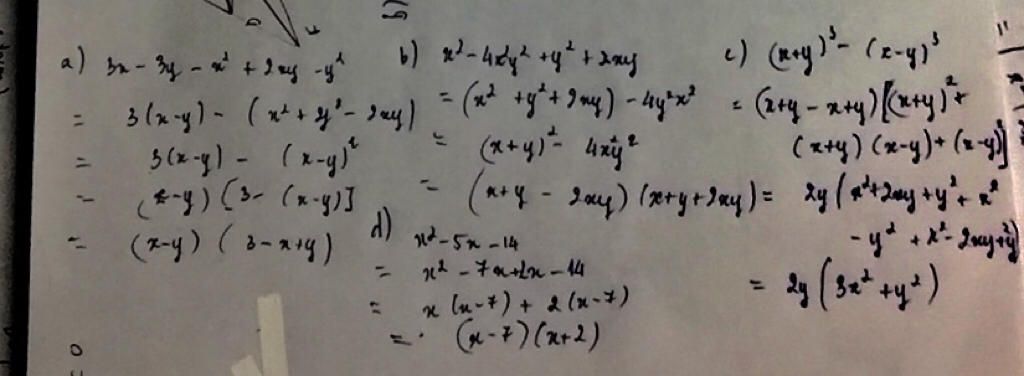 a) 3x - 3y - x² + 2xy - y²
= 3(x-y) - (x² + y² - 2xy)
= 3(x-y) - (x-y)²
= (x-y) [3 - (x-y)]
= (x-y) (3 - x+y)
b) x² - 4x²y² + y² + 2xy
= (x² + y² + 2xy) - 4y²x²
= (x+y)² - 4x²y²
= (x+y - 2xy) (x+y+2xy)
c) (x+y)³ - (x-y)³
= (x+y - x+y) [(x+y)² +
(x+y) (x-y) + (x-y)²]
= 2y (x² + 2xy + y² + x²
- y² + x² - 2xy + y²)
= 2y (3x² + y²)
d) x² - 5x - 14
= x² - 7x + 2x - 14
= x (x-7) + 2 (x-7)
= (x-7) (x+2)